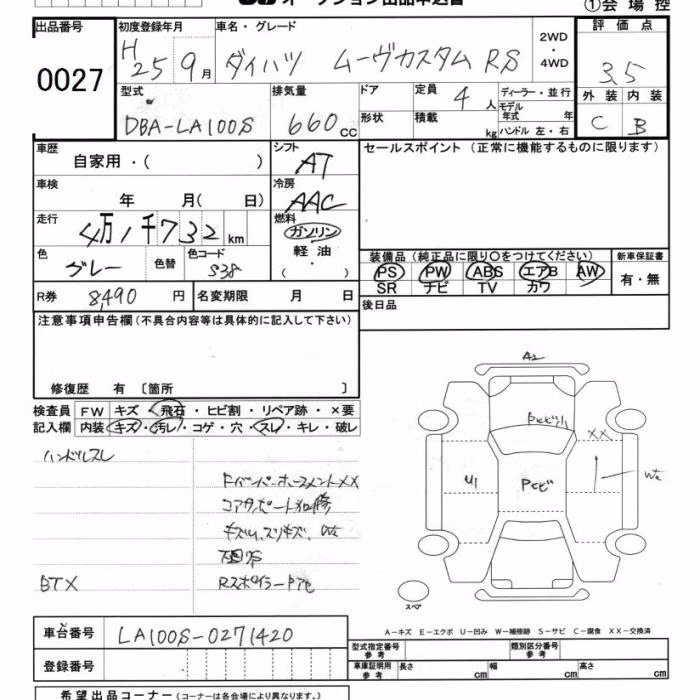 オークション出品申込書
①会場控
出品番号
0027
初度登録年月
H25 9月
車名・グレード
ダイハツ ムーヴカスタム RS
2WD・4WD
評価点
3.5
外装 内装
C B
型式
DBA-LA100S
排気量
660cc
ドア
形状
定員
4人
積載
kg
ディーラー・並行
モデル年式 年
ハンドル 左・右
車歴
自家用・( )
シフト
AT
セールスポイント(正常に機能するものに限ります)
車検
年 月( 日)
冷房
AAC
走行
4万1千732km
燃料
ガソリン
軽油
・( )
色
グレー
色替
色コード
S38
装備品(純正品に限り○をつけてください)
PS PW ABS エアB AW
SR ナビ TV カワ
新車保証書
有・無
R券 8,490 円
名変期限 月 日
後日品
注意事項申告欄(不具合内容等は具体的に記入して下さい)
修復歴 有〔箇所 〕
検査員記入欄
FW キズ・飛石・ヒビ割・リペア跡・×要
内装 キズ・汚レ・コゲ・穴・スレ・キレ・破レ
ハンドルスレ
キズム、スリキズ、
BTX
A2
XX
U1
スペア
A-キズ E-エクボ U-凹み W-補修跡 S-サビ C-腐食 XX-交換済
車台番号
LA100S-0271420
登録番号
型式指定番号 参考
類別区分番号 参考
車庫証明用 参考
長さ cm 幅 cm 高さ cm
希望出品コーナー(コーナーは各会場により異なります。)